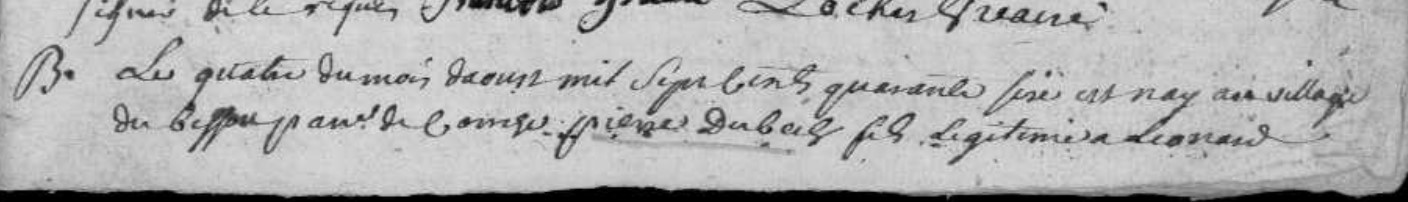 signer de le requis
B. Le quatre du mois daoust mil sept cents quarante sixe est nay au village
du pan.^t de pierre Dubech fils Legitime a Leonard